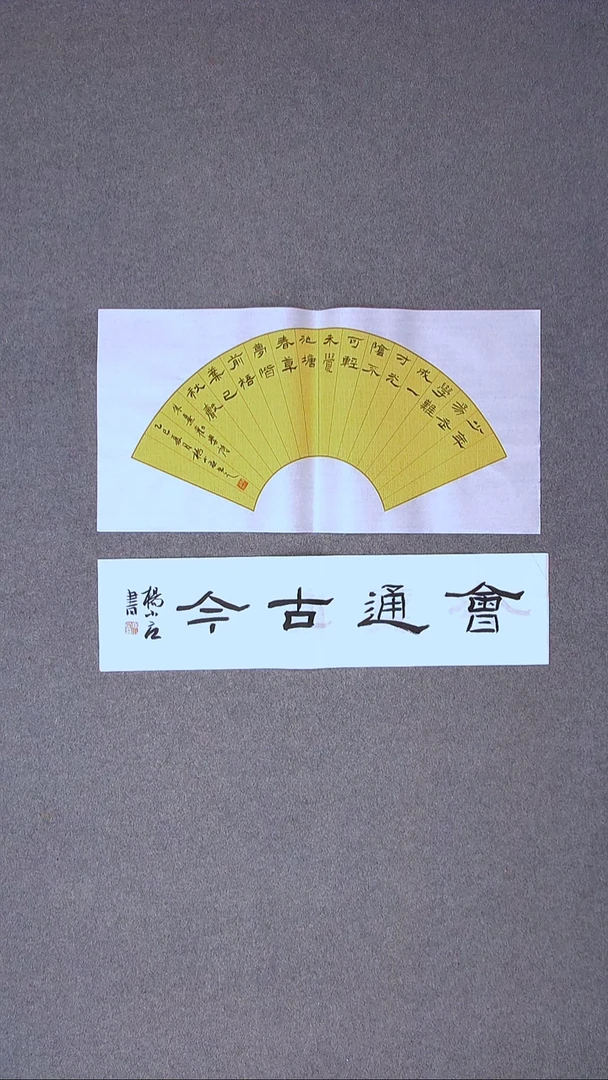 少年
易老
學難
成一
寸光
陰不
可輕
未覺
池塘
春草
夢階
前梧
葉已
秋聲
乙巳
會通古今
楊小
書